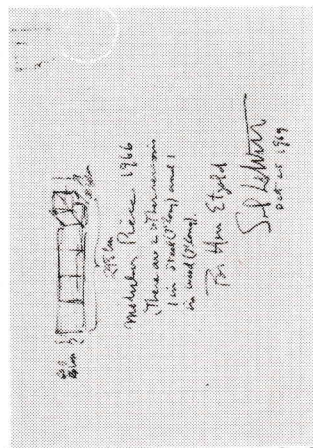 Modular Piece 1966
(There are 2 other versions
1 in steel (7" long) and 1
in wood (7" long).
For Herr Etzold
Sol LeWitt
Oct 25 1969